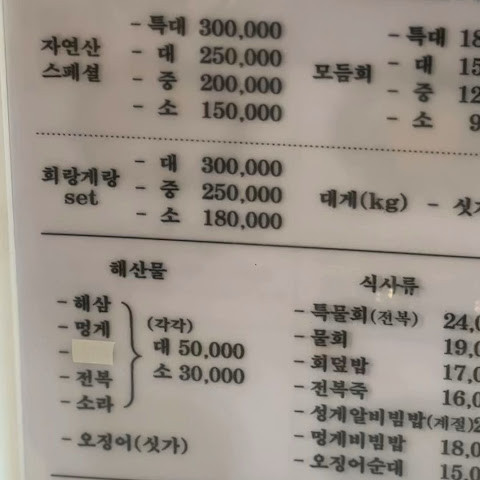 - 특대 300,000
자연산 - 대 250,000
스페셜 - 중 200,000
- 소 150,000
- 특대
모듬회 - 대
- 중
- 소
회랑게랑 - 대 300,000
set - 중 250,000
- 소 180,000
대게(kg) -
해산물
- 해삼
- 멍게
-
- 전복
- 소라
(각각)
대 50,000
소 30,000
- 오징어(싯가)
식사류
- 특물회(전복) 24,0
- 물회 19,0
- 회덮밥 17,0
- 전복죽 16,0
- 성게알비빔밥(계절)
- 멍게비빔밥 18,0
- 오징어순대 15,0